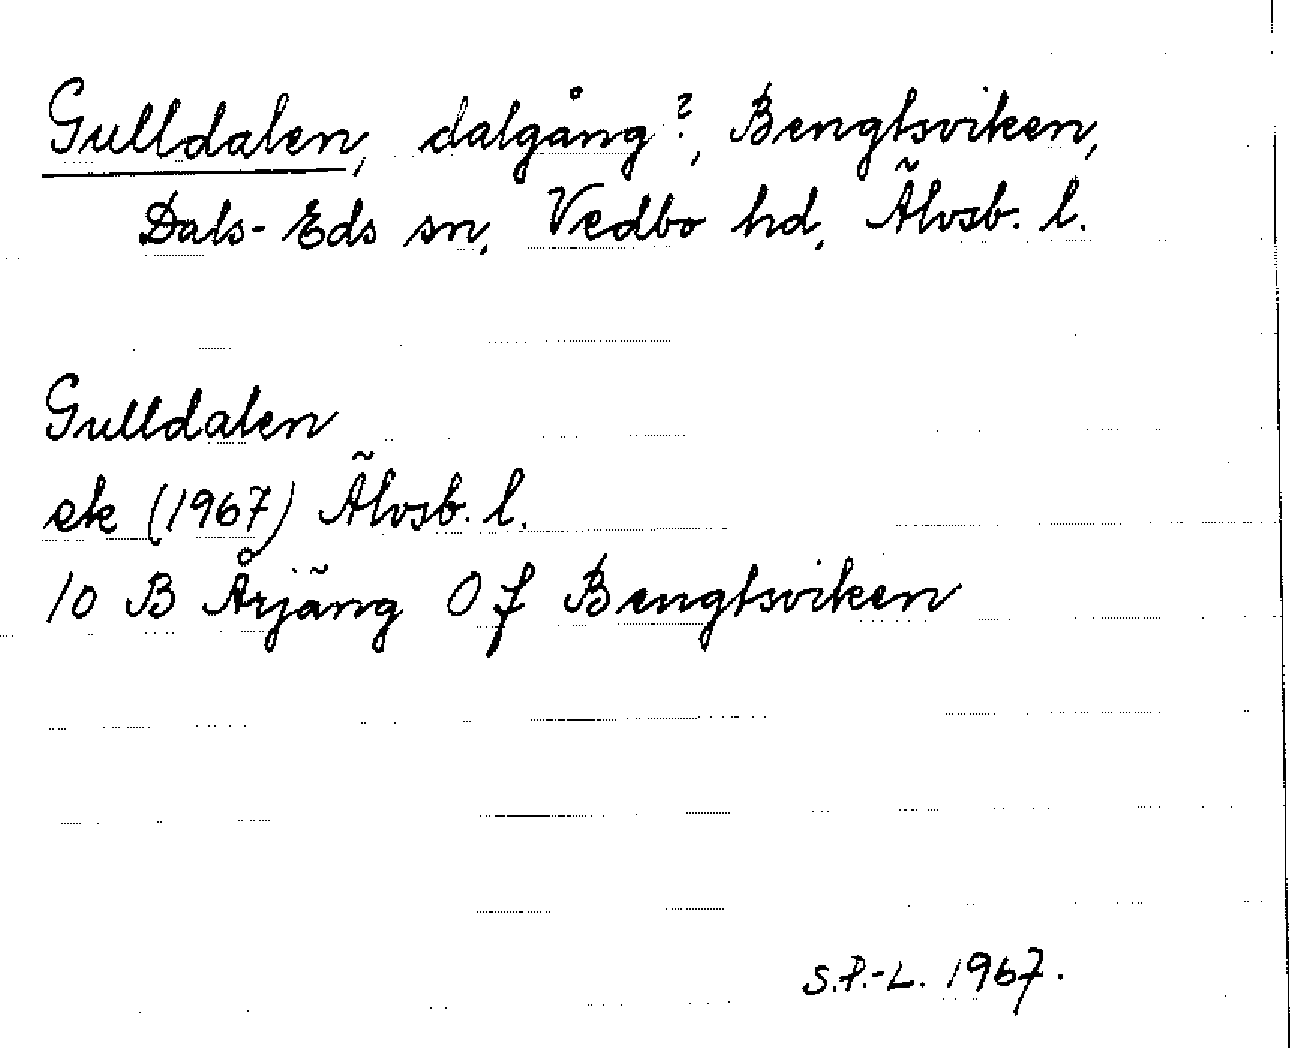 Gulldalen, dalgång?, Bengtsviken,
Dals-Eds sn, Vedbo hd, Älvsb. l.
Gulldalen
ek (1967) Älvsb. l.
10 B Årjäng 0 f Bengtsviken
S.P.-L. 1967.